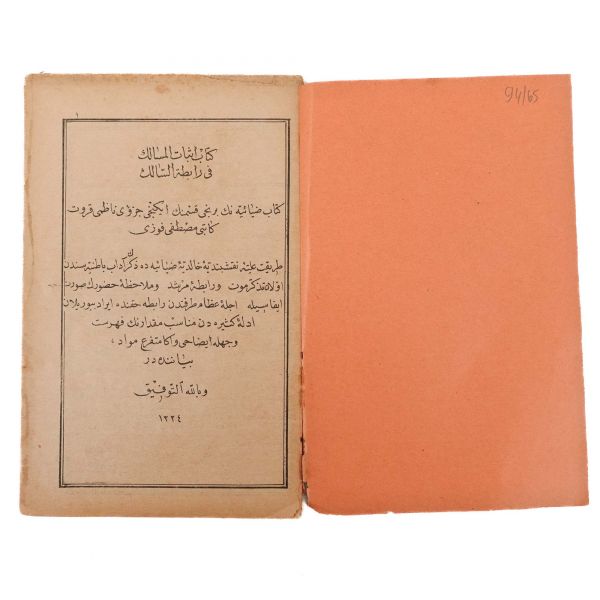 94/65
١
كتاب اثبات المسالك
فى رابطة السالك
كتاب ضيائيه نك برنجى قسمنك ايكنجى جزؤى ناظمى قروت
كاتبى مصطفى فوزى
طريقت عليهٔ نقشبنديهٔ خالديهٔ ضيائيه ده ذكرك آداب باطنيه سندن
اولان تذكر موت و رابطهٔ مرشد وملاحظهٔ حضورك صورت
ايفاسيله اجلهٔ عظام طرفندن رابطه حقنده ايراد بيوريلان
ادلهٔ كثيره دن مناسب مقدارنك فهرست
وجهله ايضاحى واكا متفرع مواد،
بياننده در
وبالله التوفيق
١٣٢٤